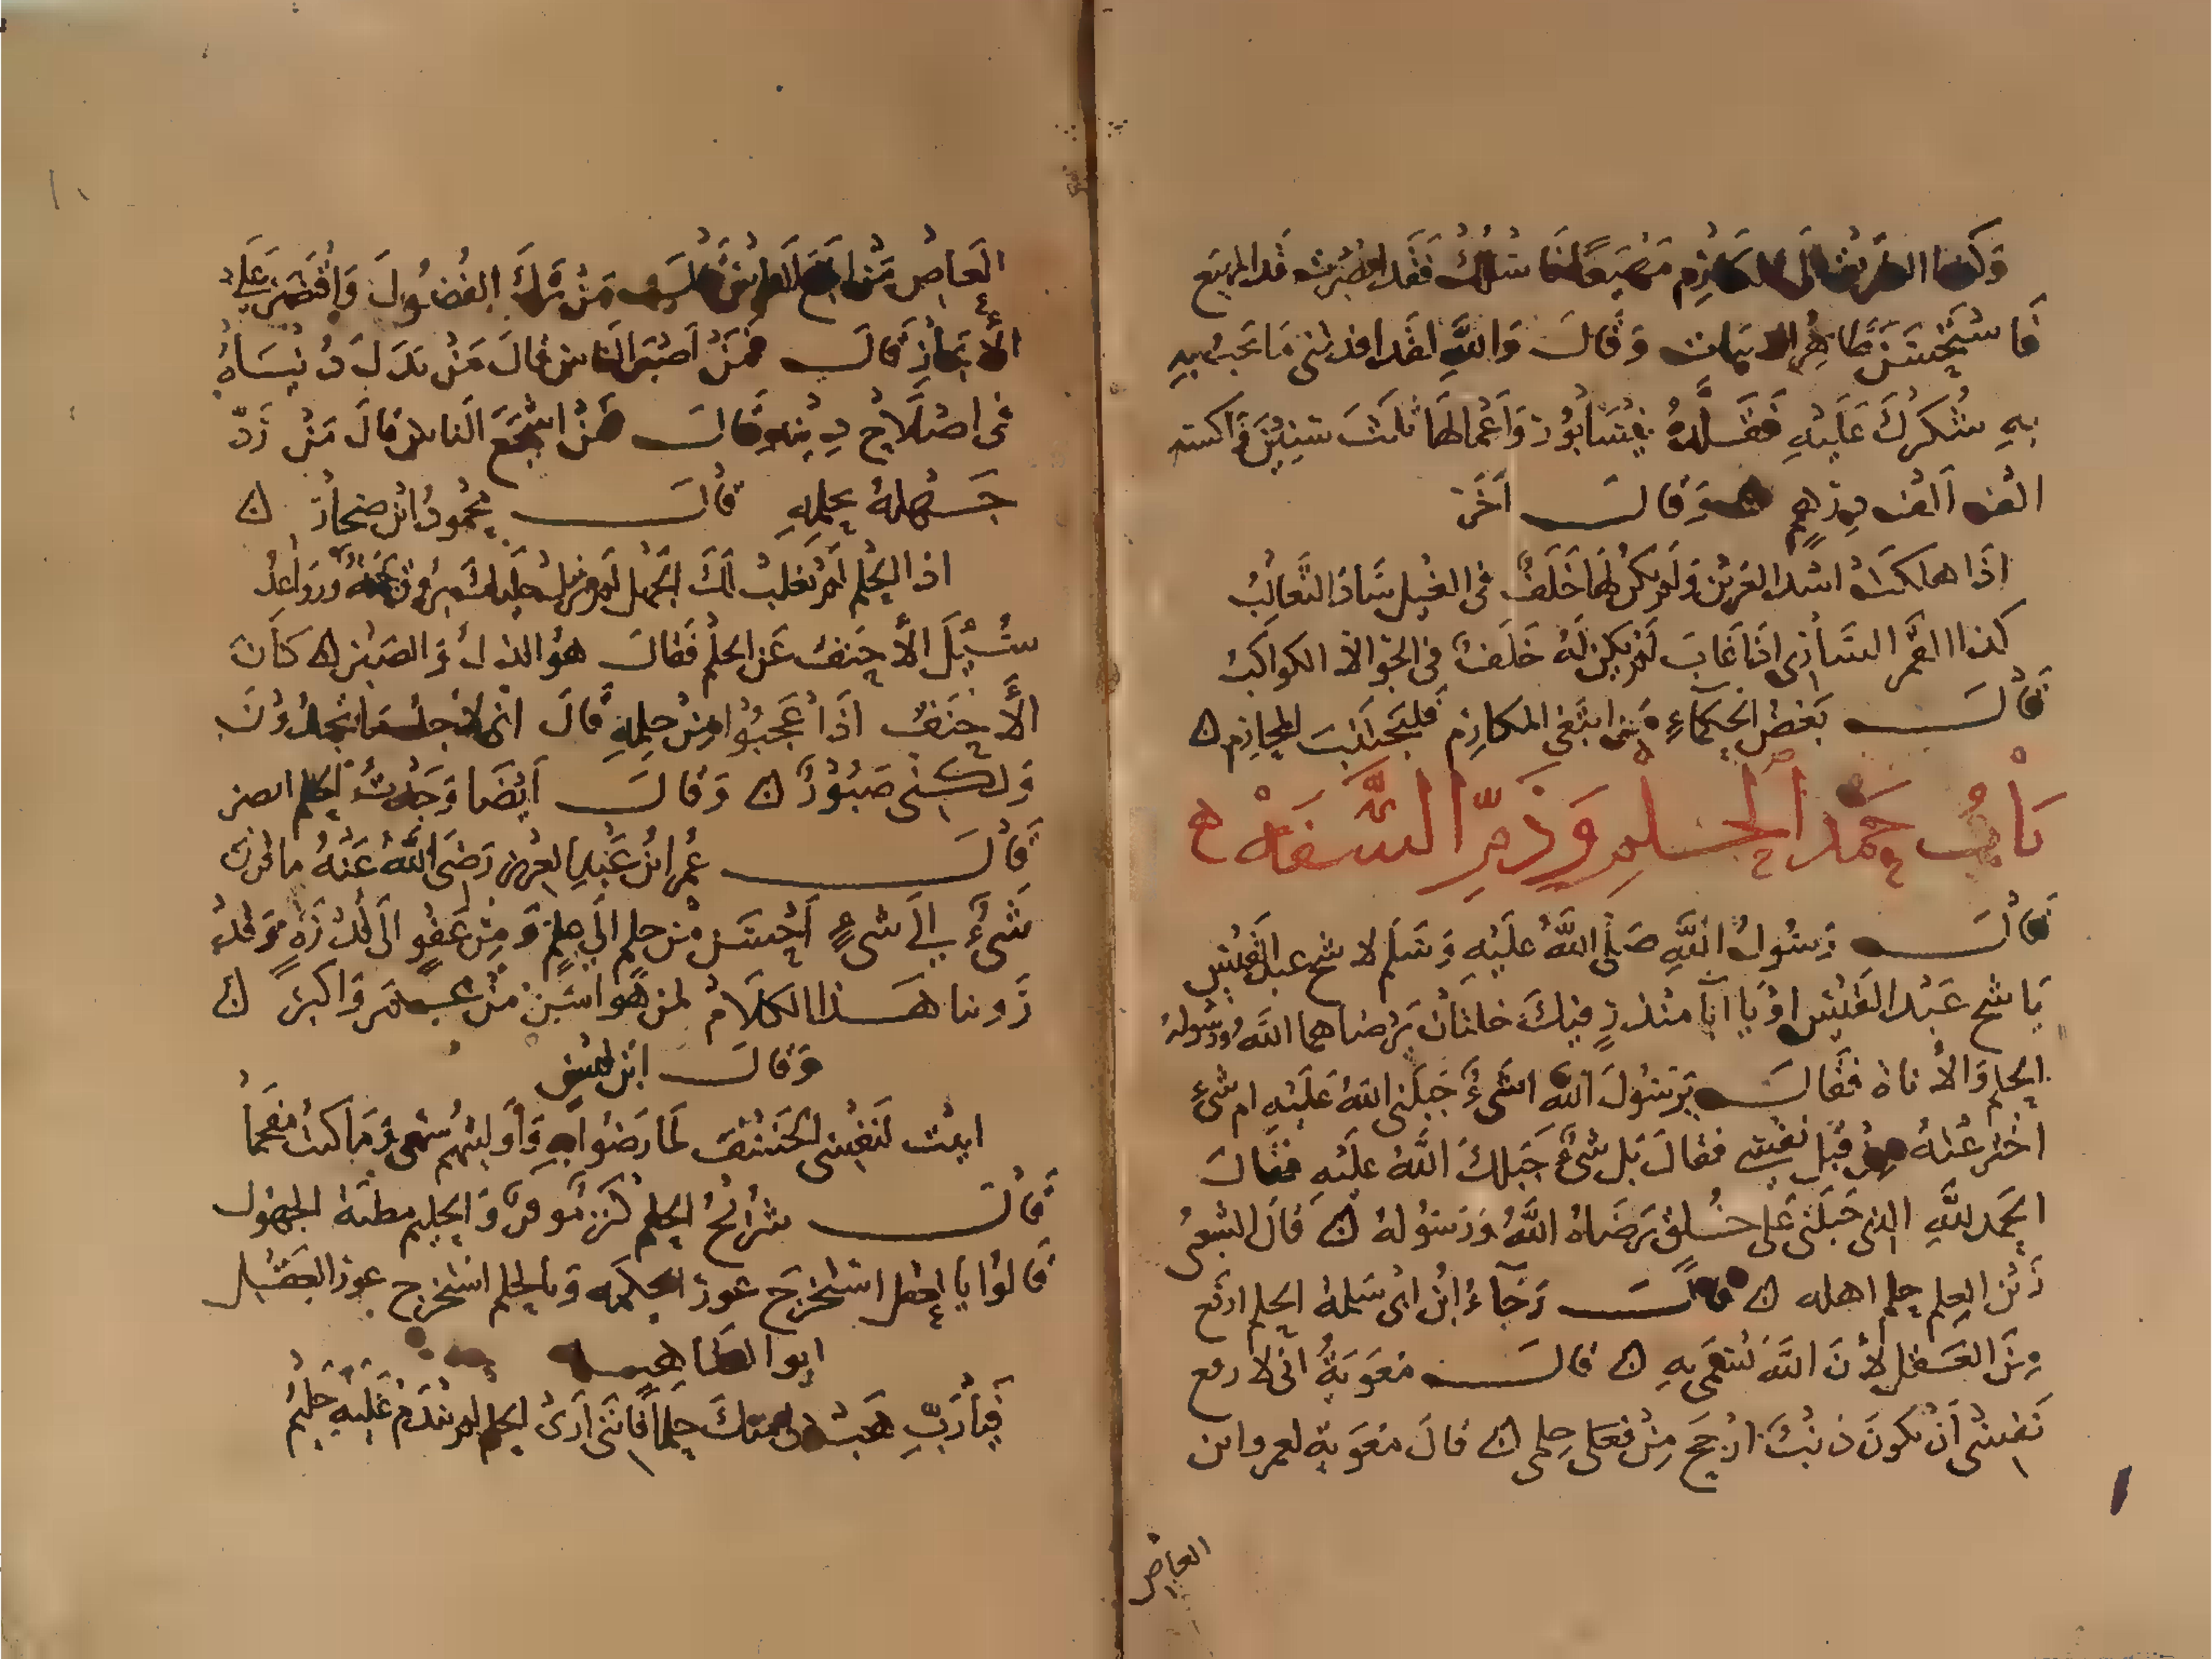 فاستحسن طاهر الابيات وقال والله لقد افدتني ما يجب به
به شكرك عليه فقلده نيسابور واعمالها ثلث سنين فاكتسب
الف الف درهم ن وقال اخر
اذا هلكت اسد العرين ولم يكن لها خلف في الغيل ساد الثعالب
كذا القمر الساري اذا غاب لم يكن له خلف في الجو الا الكواكب
قال بعض الحكماء من ابتغى المكارم فليجتنب المحارم ن
باب حمد الحلم وذم السفه ه
قال رسول الله صلى الله عليه وسلم لاشج عبد القيس
ياشج عبد القيس او يا ابا منذر فيك خلتان يرضاهما الله ورسوله
الحلم والاناة فقال يرسول الله اشيء جبلني الله عليه ام شيء
اخترعته من قبل نفسي فقال بل شيء جبلك الله عليه فقال
الحمد لله الذي جبلني على خلق يرضاه الله ورسوله ن قال الشعبي
زين العلم حلم اهله ن قال رجاء ابن ابي سلمة الحلم ارفع
من العقل لان الله تسمى به ن قال معوية اني لا رفع
نفسي ان يكون ذنب ارجح من حلمي ن قال معوية لعمرو ابن
العاص
العاص من ابلغ الناس قال من ترك الفضول واقتصر على
الايجاز قال فمن اصبر الناس قال من بذل دنياه
في اصلاح دينه قال فمن اشجع الناس قال من رد
جهله بحلمه قال محمود ابن ن
اذا الحلم لم يغلب لك الجهل لم تزل عليك بروق جمة ورواعد
سئل الاحنف عن الحلم فقال هو الذل والصبر ن كان
الاحنف اذا عجبوا من حلمه قال اني لاجد ما تجدون
ولكني صبور ن وقال ايضا وجدت الحلم انصر
قال عمر ابن عبد العزيز رضي الله عنه ما قرن
شيء الى شيء احسن من حلم الى علم ومن عفو الى قدرة وقد
روينا هذا الكلام لمن هو اسن من عمر واكبر ن
وقال ابن قيس
ابت لنفسي الخسف لما رضوا به واوليتهم سمعي وما كنت مفحما
قال شرائح الحلم كنز موفر والحليم مطية الجهول
قالوا بالعقل استخرج غور الحكمه وبالحلم استخرج غور العقل
ابوا لعتاهيه
فيارب هب لي منك حلما فانني ارى الحلم لم يندم عليه حليم